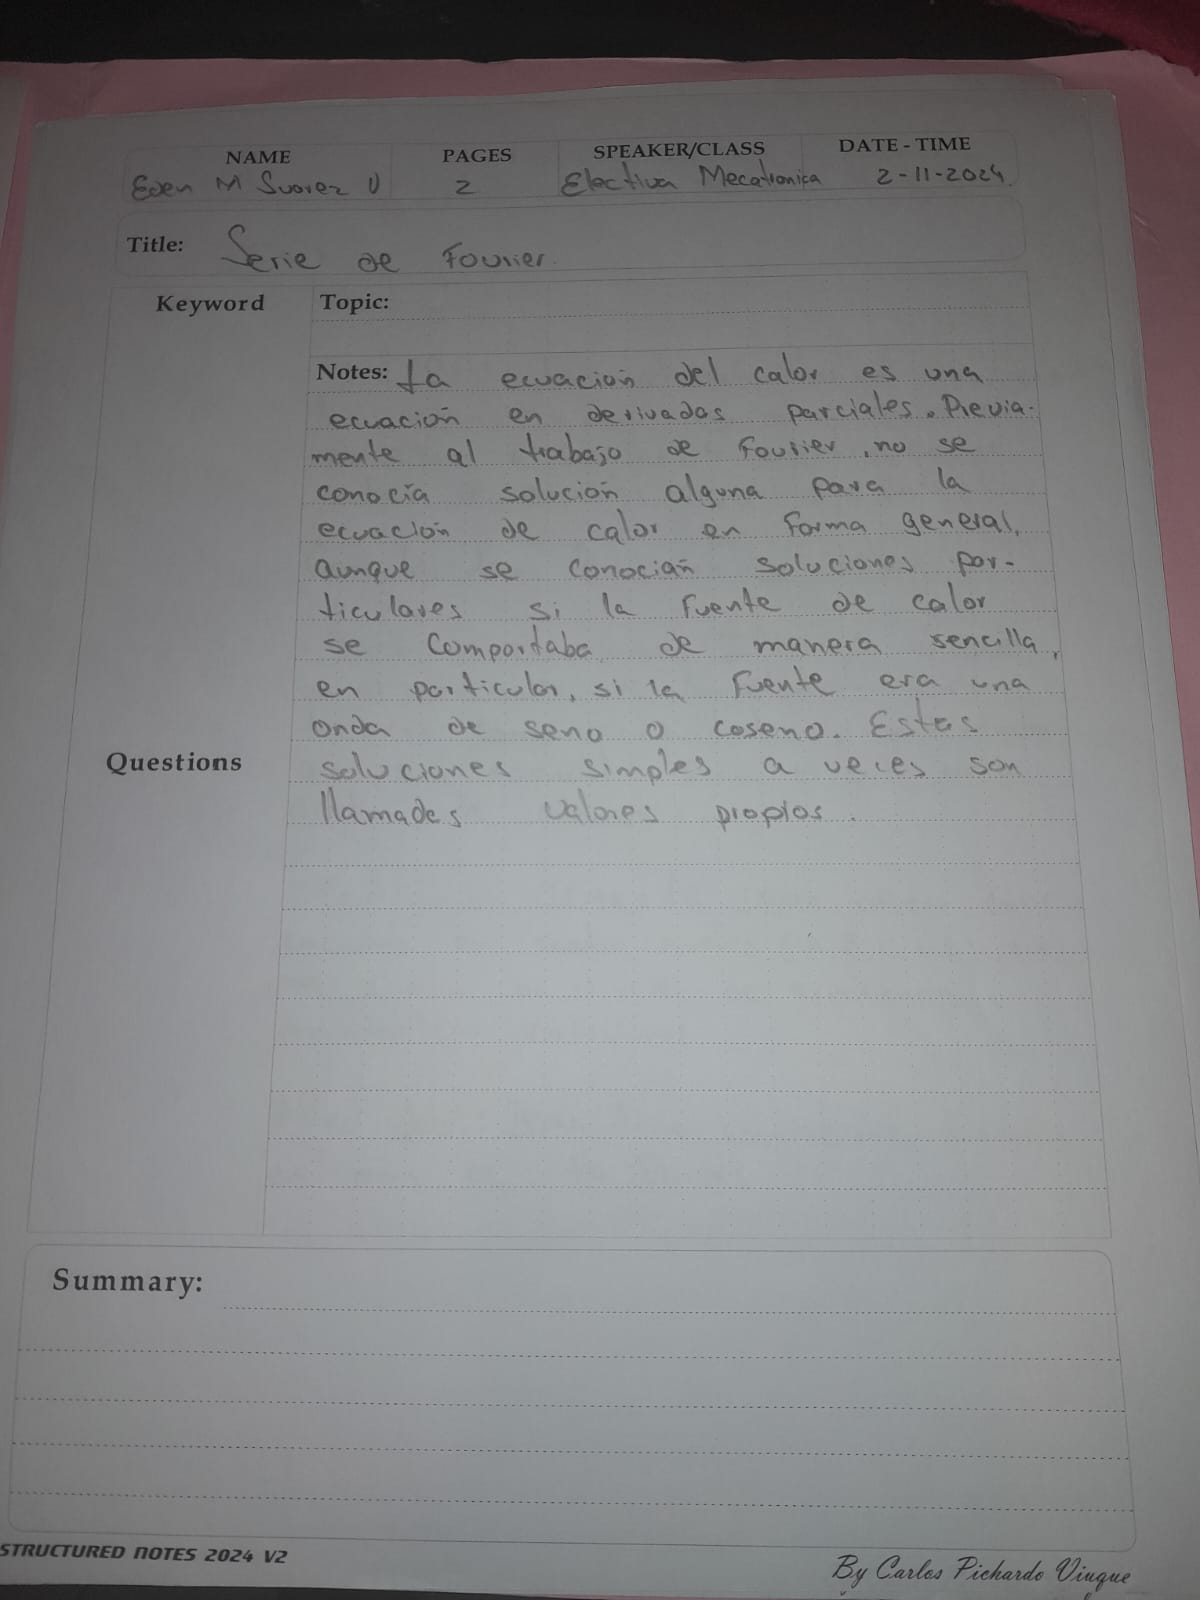 NAME PAGES SPEAKER/CLASS DATE - TIME
Eden M Suarez U 2 Electiva Mecatronica 2-11-2024.
Title: Serie de Fourier.
Keyword Topic:
Notes: La ecuación del calor es una
ecuación en derivadas parciales. Previa-
mente al trabajo de Fourier, no se
conocía solución alguna para la
ecuación de calor en forma general,
aunque se conocían soluciones par-
ticulares si la fuente de calor
se comportaba de manera sencilla,
en particular, si la fuente era una
onda de seno o coseno. Estas
Questions
soluciones simples a veces son
llamades valores propios.
Summary:
STRUCTURED NOTES 2024 V2
By Carlos Pichardo Viuque